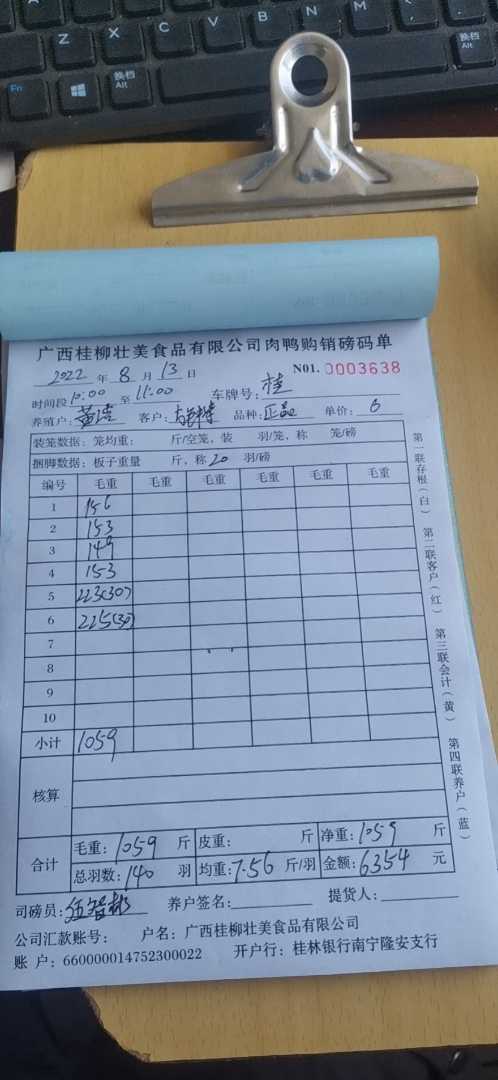 Z X C V B N M
Fn 换档 Alt 换档 Alt
广西桂柳壮美食品有限公司肉鸭购销磅码单
2022 年 8 月 13 日 N01. 0003638
时间段 10:00 至 11:00 车牌号: 桂
养殖户: 黄 客户: 品种: 正品 单价: 6
装笼数据: 笼均重: 斤/空笼, 装 羽/笼, 称 笼/磅
捆脚数据: 板子重量 斤, 称 20 羽/磅
编号 毛重 毛重 毛重 毛重 毛重 毛重
1 156
2 153
3 149
4 153
5 223(30)
6 225(30)
7
8
9
10
小计 1059
核算
合计 毛重: 1059 斤 皮重: 斤 净重: 1059 斤
总羽数: 140 羽 均重: 7.56 斤/羽 金额: 6354 元
司磅员: 伍智彬 养户签名: 提货人:
公司汇款账号: 户名: 广西桂柳壮美食品有限公司
账 户: 660000014752300022 开户行: 桂林银行南宁隆安支行
第一联存根(白) 第二联客户(红) 第三联会计(黄) 第四联养户(蓝)